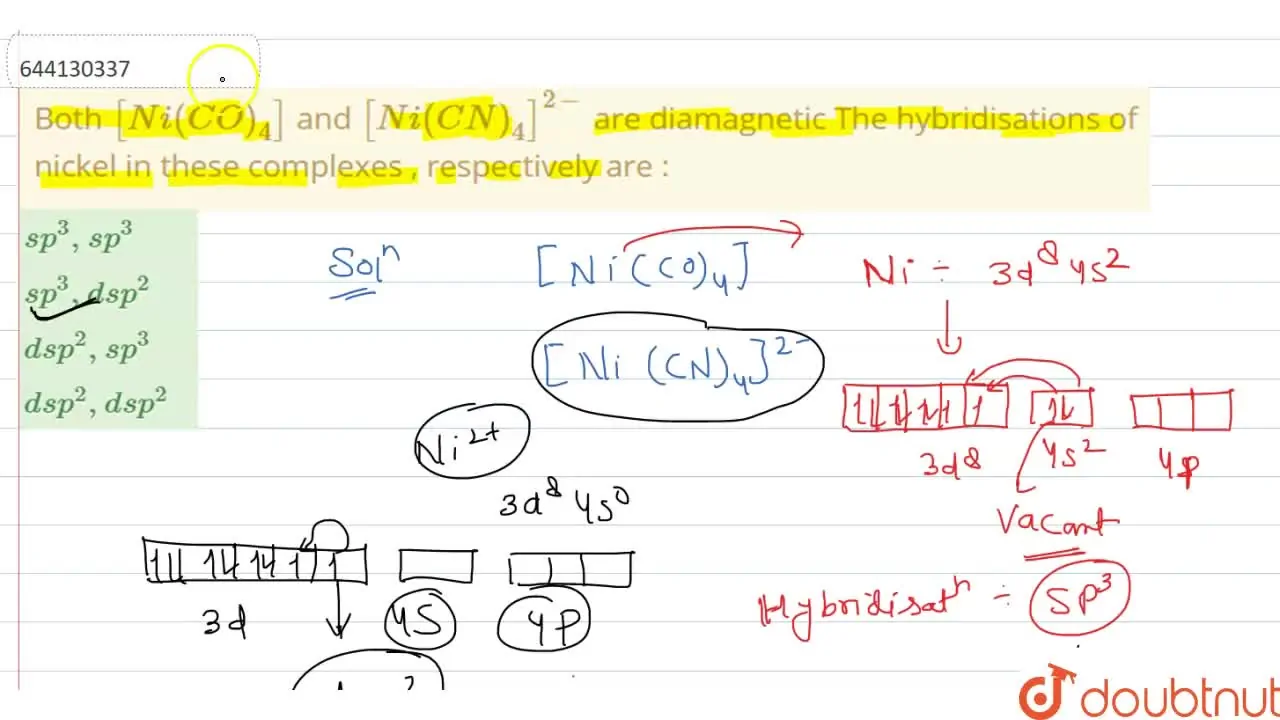 644130337
Both [Ni(CO)₄] and [Ni(CN)₄]²⁻ are diamagnetic The hybridisations of
nickel in these complexes , respectively are :
sp³, sp³
sp³, dsp²
dsp², sp³
dsp², dsp²
Solⁿ
[Ni(CO)₄]
Ni ÷ 3d⁸ 4s²
[Ni(CN)₄]²⁻
3d⁸ 4s² 4p
Ni²⁺
3d⁸ 4s⁰
Vacant
Hybridisatⁿ ÷ SP³
3d 4S 4P
doubtnut